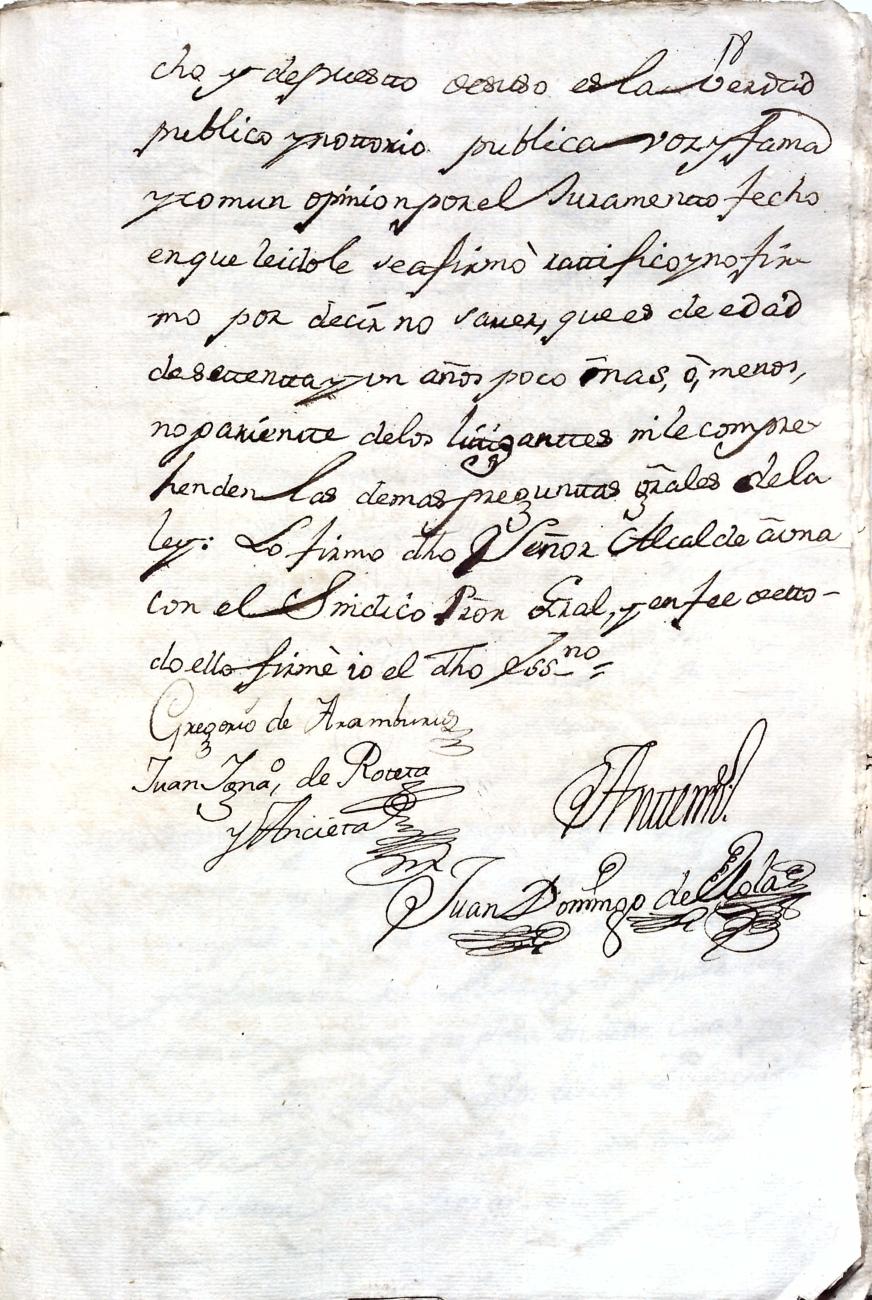 18
cho y depuestto desuso es la Verdad
publico ynottorio publica voz y fama
y comun opinion por el Juramentto fecho
en que leidole se afirmò rattifico y no fir
mo por decir no saver, que es de edad
de settentta y un años poco mas, ò, menos,
no parientte delos litiganttes ni le compre
henden las demas preguntas grãles de la
ley: Lo firmo dho Señor Alcalde auna
con el Sindico Prõr Gral, y en fee de tto
do ello firmè io el dho essno=
Gregorio de Aramburu
Juan Ignaº, de Roteta
y Ancieta
Anttemi
Juan Domingo de Elola